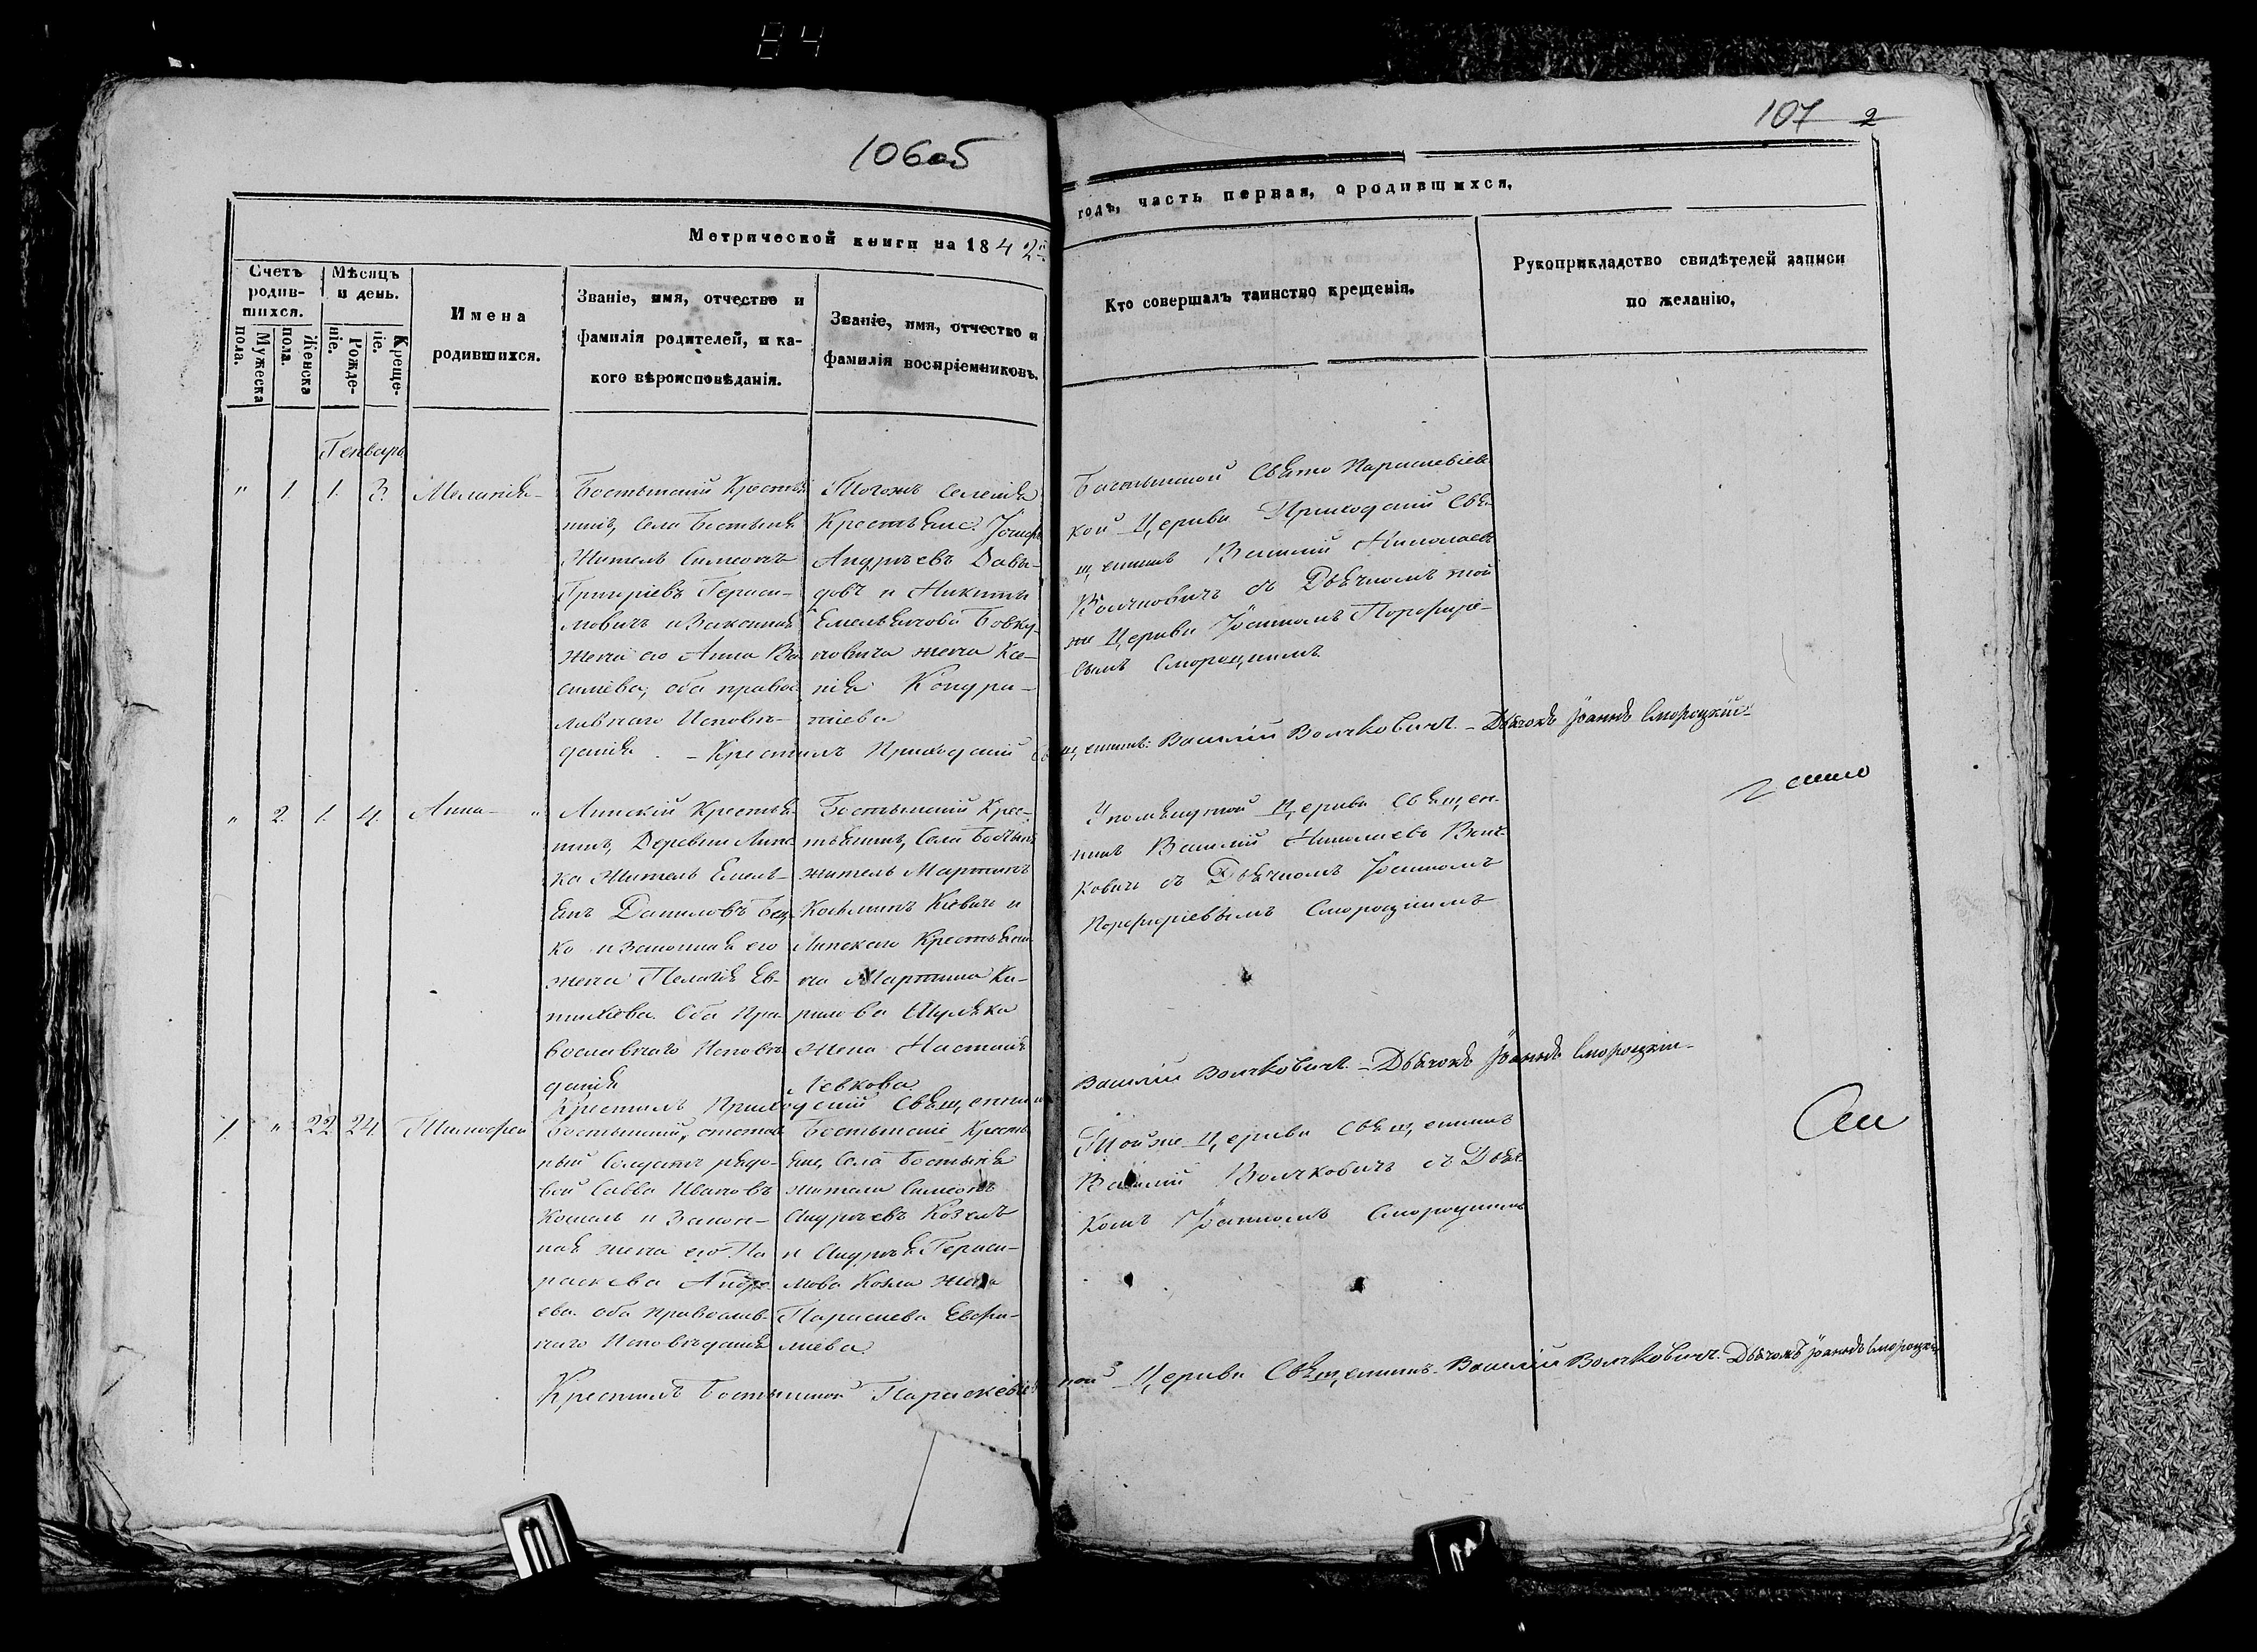 84
106об
107 2
Метрической книги на 1842й
годъ, часть первая, о родившихся,
Счетъ родив-шихся.
Мужеска пола.
Женска пола.
Мѣсяцъ и день.
Рожде-ніе.
Креще-ніе.
Имена
родившихся.
Званіе, имя, отчество и
фамилія родителей, и ка-
кого вѣроисповѣданія.
Званіе, имя, отчество и
фамилія воспріемниковъ.
Кто совершалъ таинство крещенія.
Рукоприкладство свидѣтелей записи
по желанію,
Генварь
" 1. 1. 3. Меланія
Бостынскій Крестья
нинъ, села Бостыня
Житель Симеонъ
Григоріевъ Гераси-
мовичъ и Законная
жена его Анна Ва
силіева, оба право
славнаго Исповѣ-
данія. - Крестилъ Приходскій Священникъ: Василій Волчковичъ. - Дьячокъ Іоаннъ Смороцкій
Тогожъ Селенія
Крестьяне: Іосифъ
Андреевъ Давы-
довъ и Никиты
Емельянова
жена Ксе-
нія Кондра-
тіева
Бостынской Свято Параскевіевс
кой Церкви Приходскій Свя-
щенникъ Василій Николаевъ
Волчковичъ съ Дьячкомъ той
же Церкви Іоанномъ Порфиріе-
вымъ Смороцкимъ.
" 2. 1. 4. Анна "
Липскій Крестья
нинъ, Деревни Липс
ка Житель Емель-
янъ Даниловъ
ко и Законная его
жена Пелагія Ев-
тихіева. Оба Пра
вославнаго Исповѣ
данія
Бостынскій Крес-
тьянинъ, Села Бостыня
житель Мартинъ
Косминъ и
Липскаго Крестьяни
на Мартина Ки-
рилова Шуляка
Жена Настасія
Левкова.
Упомянутой Церкви Священ-
никъ Василій Николаевъ Волч-
ковичъ съ Дьячкомъ Іоанномъ
Порфиріевымъ Смороцкимъ
Крестилъ Приходскій Священникъ
Василій Волчковичъ. - Дьячокъ Іоаннъ Смороцкій
1. " 22 24. Тимофей
Бостынскій, отстав
ный Солдатъ рядо-
вой Савва Ивановъ
Кошель и Закон-
ная жена его Па
раскева Андре
ева. оба православ-
наго Исповѣданія
Бостынскіе Кресть
яне, Села Бостыня
жители Симеонъ
Андреевъ Козелъ
и Андрея Гераси-
мова Козла жена
Параскева Евфи-
міева.
Тойже Церкви Священникъ
Василій Волчковичъ съ Дьяч
комъ Іоанномъ Смороцкимъ
Крестилъ Бостынской Параскевіевской Церкви Священникъ Василій Волчковичъ. Дьячокъ Іоаннъ Смороцкій